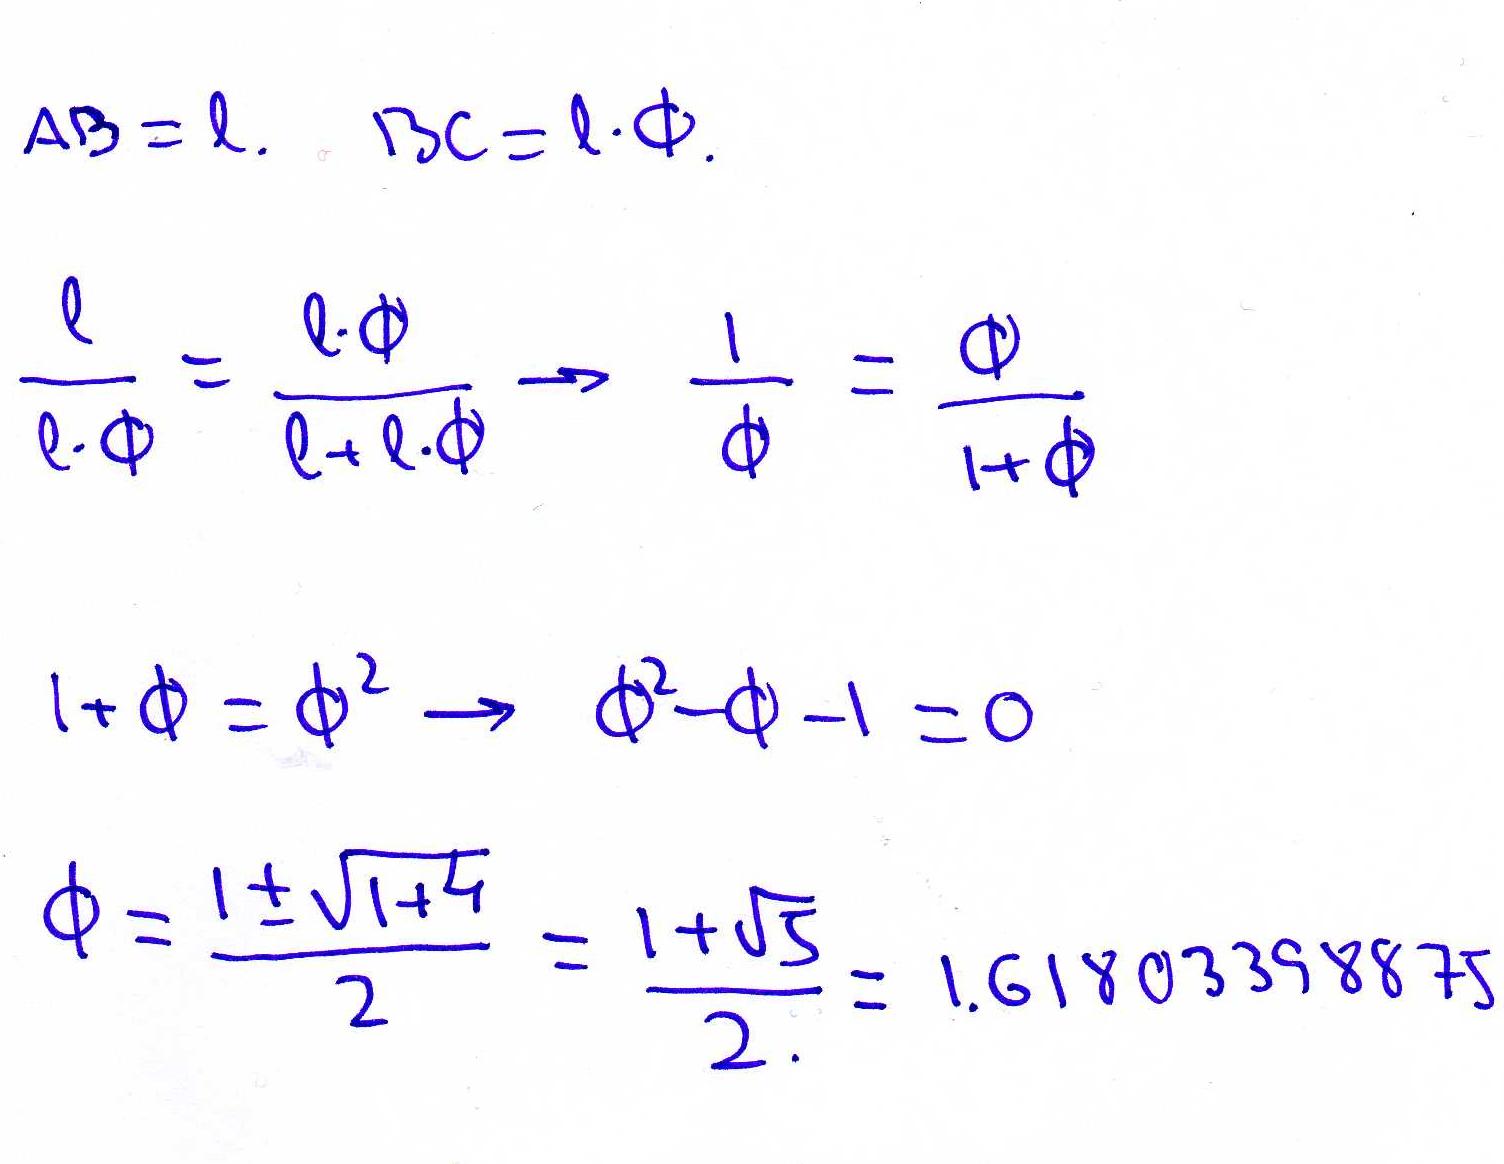 AB = l. BC = l·Φ.
l/(l·Φ) = (l·Φ)/(l+l·Φ) → 1/Φ = Φ/(1+Φ)
1+Φ = Φ² → Φ²-Φ-1=0
Φ = (1±√(1+4))/2 = (1+√5)/2. = 1.61803398875